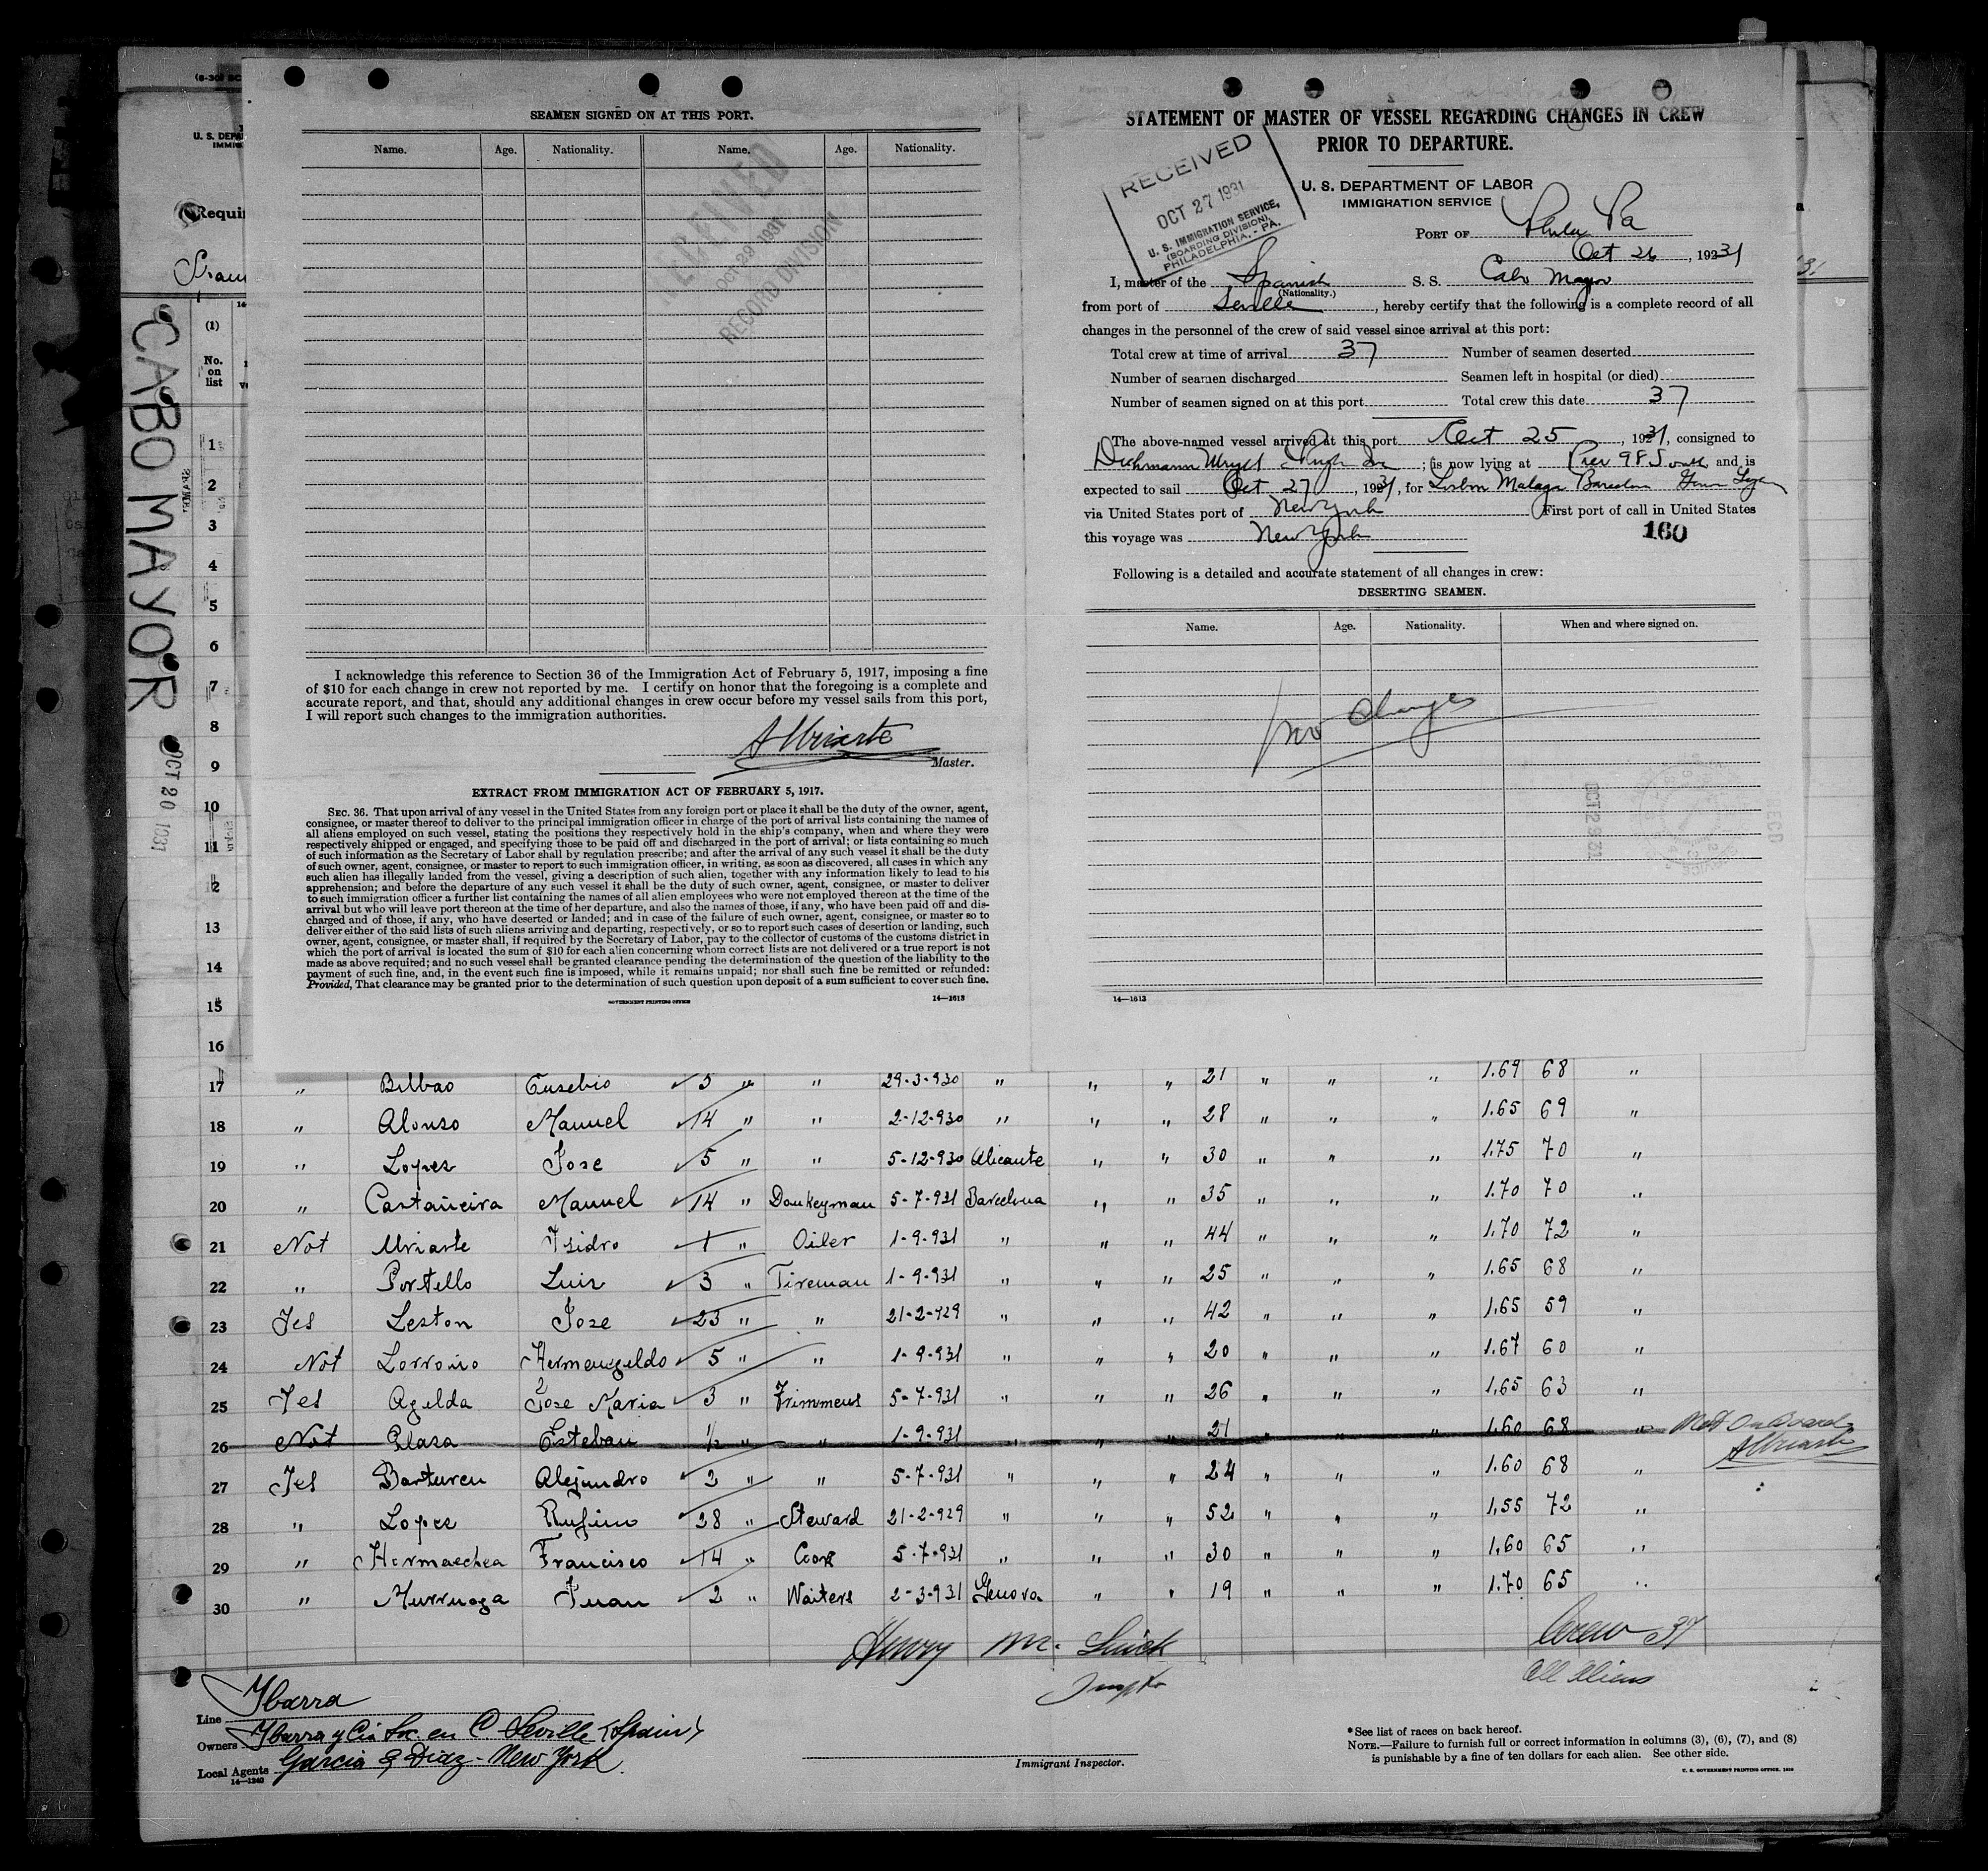 SEAMEN SIGNED ON AT THIS PORT.
Name. Age. Nationality. Name. Age. Nationality.
RECEIVED
OCT 29 1931
RECORD DIVISION
I acknowledge this reference to Section 36 of the Immigration Act of February 5, 1917, imposing a fine
of $10 for each change in crew not reported by me. I certify on honor that the foregoing is a complete and
accurate report, and that, should any additional changes in crew occur before my vessel sails from this port,
I will report such changes to the immigration authorities.
AUriarte
Master.
EXTRACT FROM IMMIGRATION ACT OF FEBRUARY 5, 1917.
SEC. 36. That upon arrival of any vessel in the United States from any foreign port or place it shall be the duty of the owner, agent,
consignee, or master thereof to deliver to the principal immigration officer in charge of the port of arrival lists containing the names of
all aliens employed on such vessel, stating the positions they respectively hold in the ship's company, when and where they were
respectively shipped or engaged, and specifying those to be paid off and discharged in the port of arrival; or lists containing so much
of such information as the Secretary of Labor shall by regulation prescribe; and after the arrival of any such vessel it shall be the duty
of such owner, agent, consignee, or master to report to such immigration officer, in writing, as soon as discovered, all cases in which any
such alien has illegally landed from the vessel, giving a description of such alien, together with any information likely to lead to his
apprehension; and before the departure of any such vessel it shall be the duty of such owner, agent, consignee, or master to deliver
to such immigration officer a further list containing the names of all alien employees who were not employed thereon at the time of the
arrival but who will leave port thereon at the time of her departure, and also the names of those, if any, who have been paid off and dis-
charged and of those, if any, who have deserted or landed; and in case of the failure of such owner, agent, consignee, or master so to
deliver either of the said lists of such aliens arriving and departing, respectively, or so to report such cases of desertion or landing, such
owner, agent, consignee, or master shall, if required by the Secretary of Labor, pay to the collector of customs of the customs district in
which the port of arrival is located the sum of $10 for each alien concerning whom correct lists are not delivered or a true report is not
made as above required; and no such vessel shall be granted clearance pending the determination of the question of the liability to the
payment of such fine, and, in the event such fine is imposed, while it remains unpaid; nor shall such fine be remitted or refunded:
Provided, That clearance may be granted prior to the determination of such question upon deposit of a sum sufficient to cover such fine.
GOVERNMENT PRINTING OFFICE 14—1613
STATEMENT OF MASTER OF VESSEL REGARDING CHANGES IN CREW
PRIOR TO DEPARTURE.
RECEIVED
OCT 27 1931
U. S. IMMIGRATION SERVICE,
(BOARDING DIVISION),
PHILADELPHIA, - PA.
U. S. DEPARTMENT OF LABOR
IMMIGRATION SERVICE
PORT OF Phila Pa
Oct 26, 1931
I, master of the Spanish S. S. Cabo Mayor
(Nationality.)
from port of Seville, hereby certify that the following is a complete record of all
changes in the personnel of the crew of said vessel since arrival at this port:
Total crew at time of arrival 37 Number of seamen deserted
Number of seamen discharged Seamen left in hospital (or died)
Number of seamen signed on at this port Total crew this date 37
The above-named vessel arrived at this port Oct 25, 1931, consigned to
Dichmann Wright & Pugh Inc; is now lying at Pier 98 South and is
expected to sail Oct 27, 1931, for Lisbon Malaga
via United States port of New York First port of call in United States
this voyage was New York
160
Following is a detailed and accurate statement of all changes in crew:
DESERTING SEAMEN.
Name. Age. Nationality. When and where signed on.
no changes
OCT 29 31
14—1613
(1)
No. on list
CABO MAYOR
OCT 20 1931
1
2
3
4
5
6
7
8
9
10
11
12
13
14
15
16
17 " Bilbao Eusebio 5 " " 29-3-930 " " " 21 " " " 1.69 68 "
18 " Alonso Manuel 14 " " 2-12-930 " " " 28 " " " 1.65 69 "
19 " Lopez Jose 5 " " 5-12-930 Alicante " " 30 " " " 1.75 70 "
20 " Castañeira Manuel 14 " Donkeyman 5-7-931 Barcelona " " 35 " " " 1.70 70 "
21 Not Uriarte Isidro 1 " Oiler 1-9-931 " " " 44 " " " 1.70 72 "
22 " Portello Luis 3 " Fireman 1-9-931 " " " 25 " " " 1.65 68 "
23 Yes Leston Jose 23 " " 21-2-929 " " " 42 " " " 1.65 59 "
24 Not Lorroño Hermengeldo 5 " " 1-9-931 " " " 20 " " " 1.67 60 "
25 Yes Agilda Jose Maria 3 " Trimmers 5-7-931 " " " 26 " " " 1.65 63 "
26 Not Plasa Esteban ½ " " 1-9-931 " " " 21 " " " 1.60 68 " Not On Board
AUriarte
27 Yes Barturen Alejandro 2 " " 5-7-931 " " " 24 " " " 1.60 68 "
28 " Lopez Rufino 28 " Steward 21-2-929 " " " 52 " " " 1.55 72 "
29 " Hormaechea Francisco 14 " Cook 5-7-931 " " " 30 " " " 1.60 65 "
30 " Murruaga Juan 2 " Waiters 2-3-931 Genova " " 19 " " " 1.70 65 "
Henry
Crew 37
All Aliens
Line Ibarra
Owners Ibarra y Cia Soc. en C. Seville (Spain)
Local Agents Garcia & Diaz - New York
14—1240
Immigrant Inspector.
*See list of races on back hereof.
NOTE.—Failure to furnish full or correct information in columns (3), (6), (7), and (8)
is punishable by a fine of ten dollars for each alien. See other side.